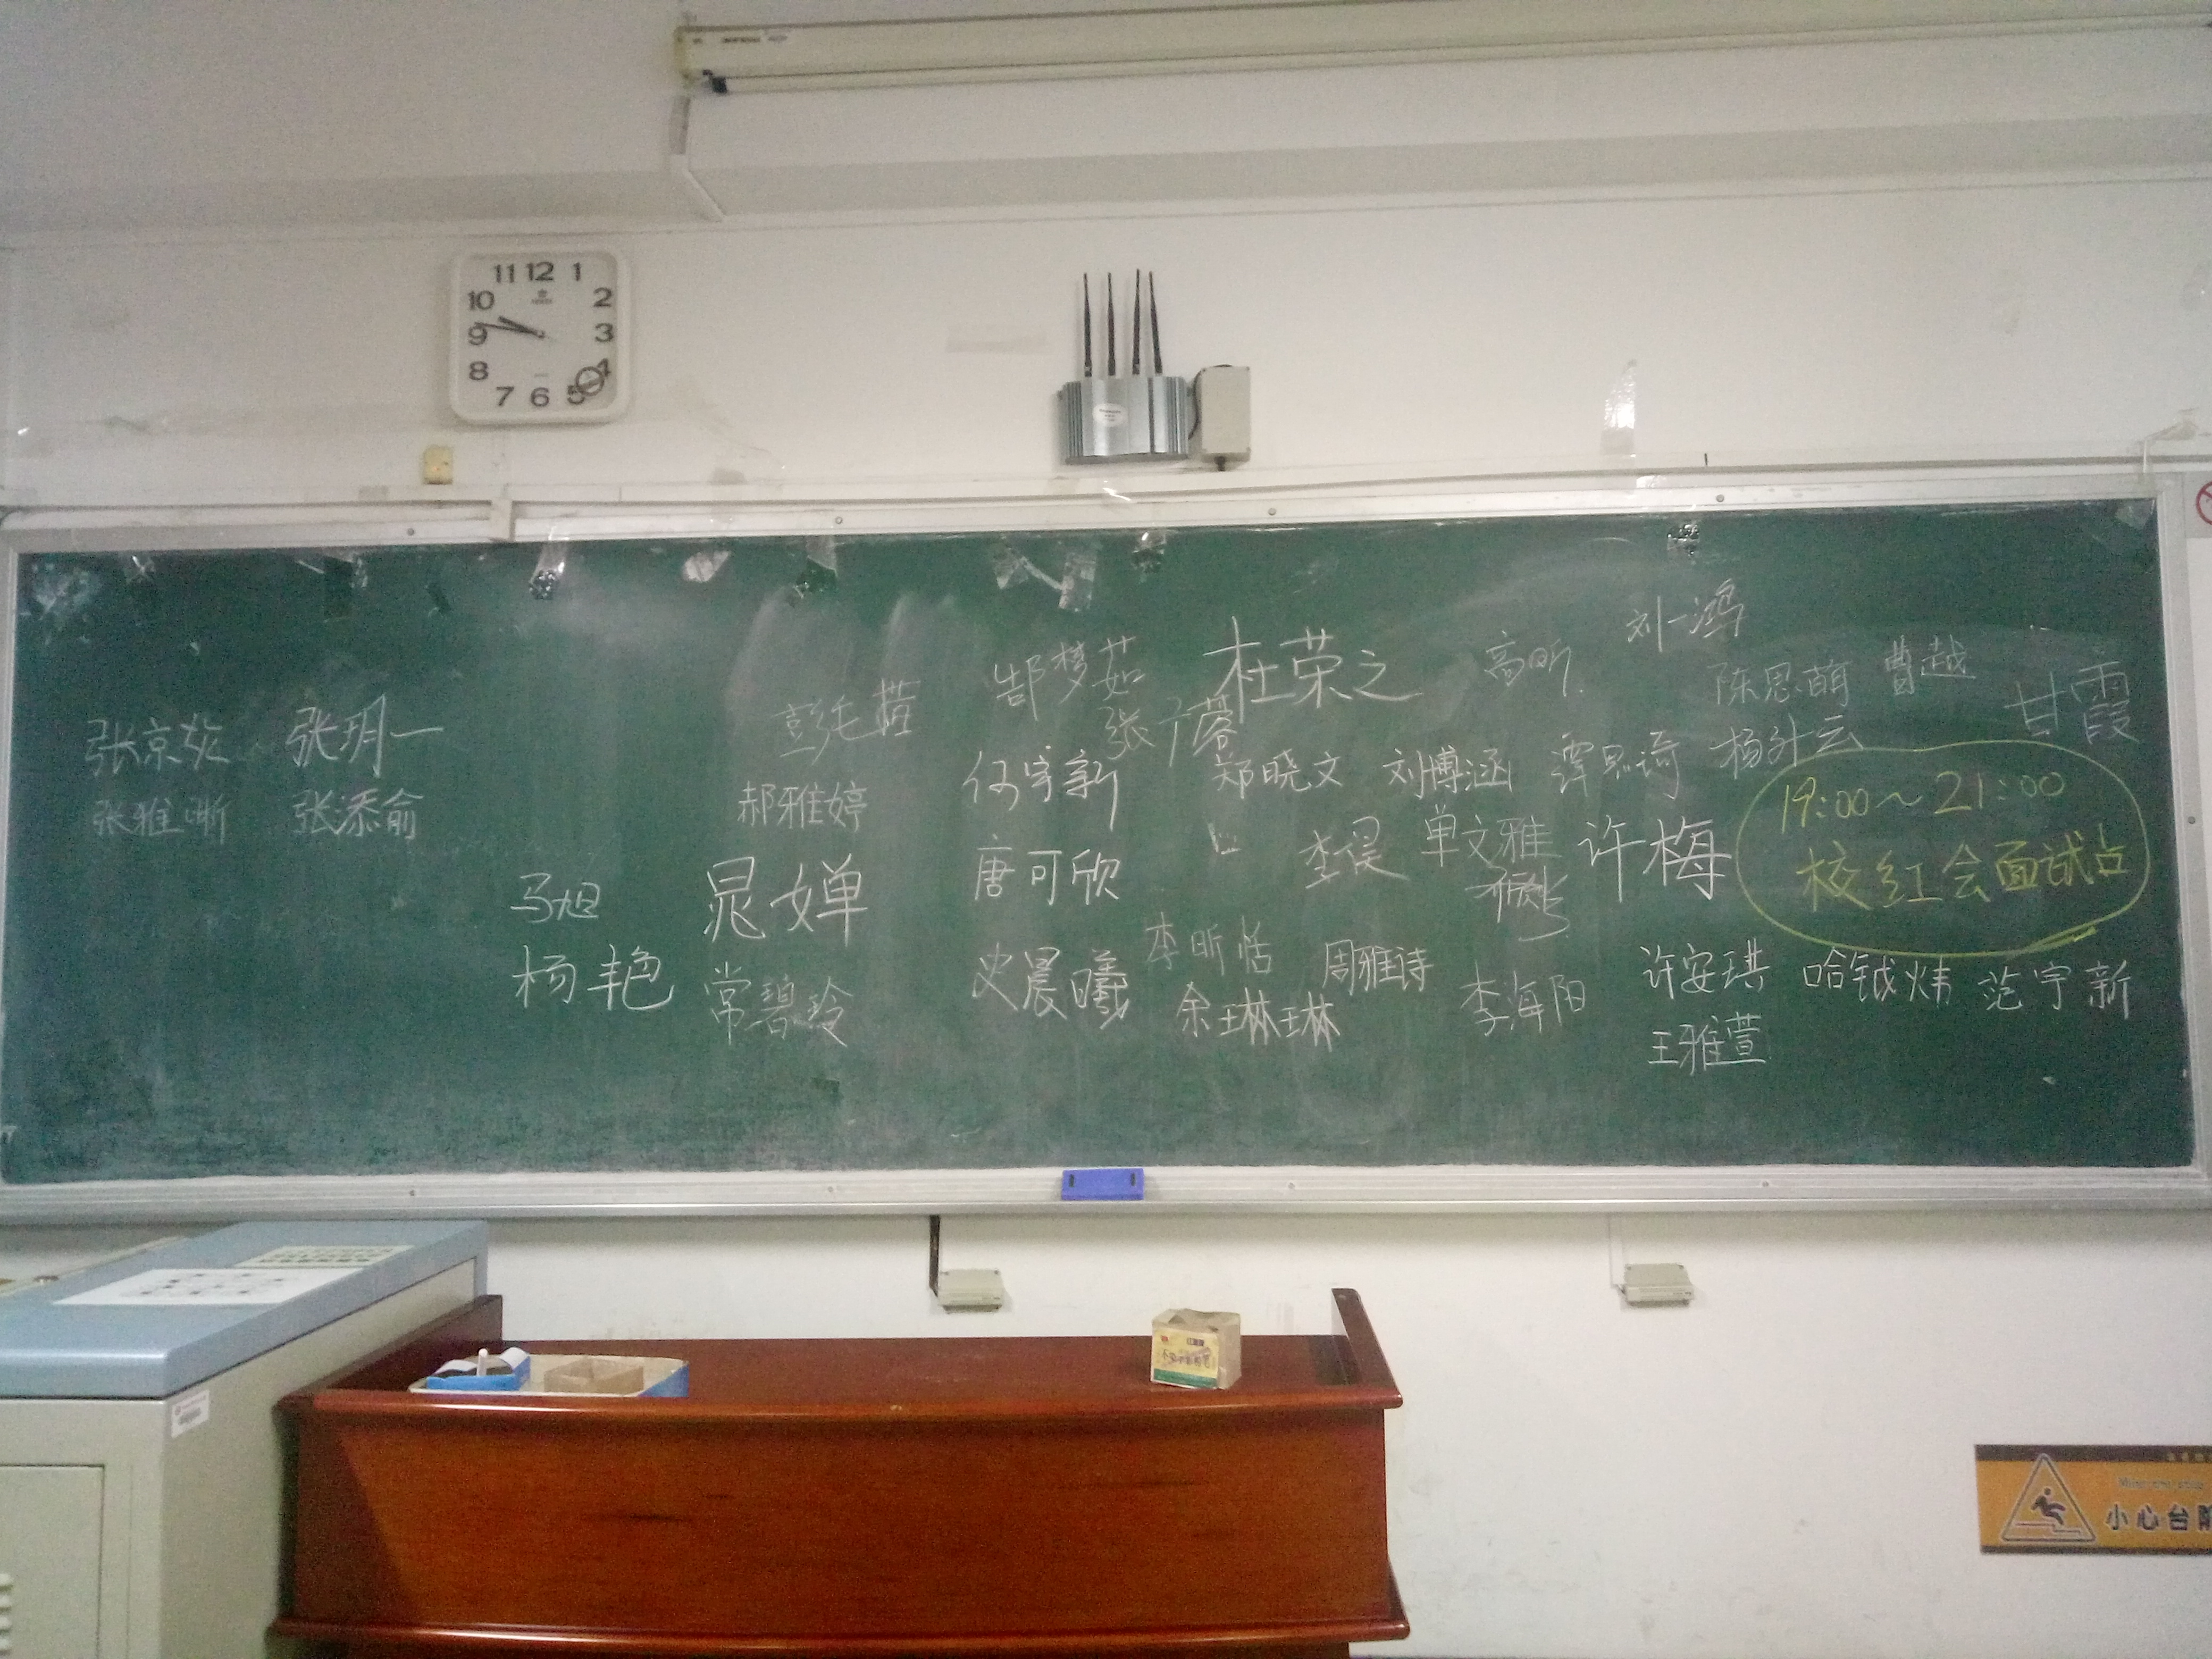 11 12 1
10 2
9 3
8 4
7 6 5
刘一鸿
郜梦茹 杜荣之 高昕
陈思萌 曹越 甘霞
张京 张玥一
张 蓉
何宇新 郑晓文 刘博涵
张雅晰 张添俞 郝雅婷
19:00~21:00
单文雅 许梅 校红会面试点
马旭 晁婵 唐可欣
李昕恬 周雅诗
杨艳 常碧玲 史晨曦 余琳琳 李海阳
许安琪 哈钺炜 范宇新
王雅萱
小心台阶